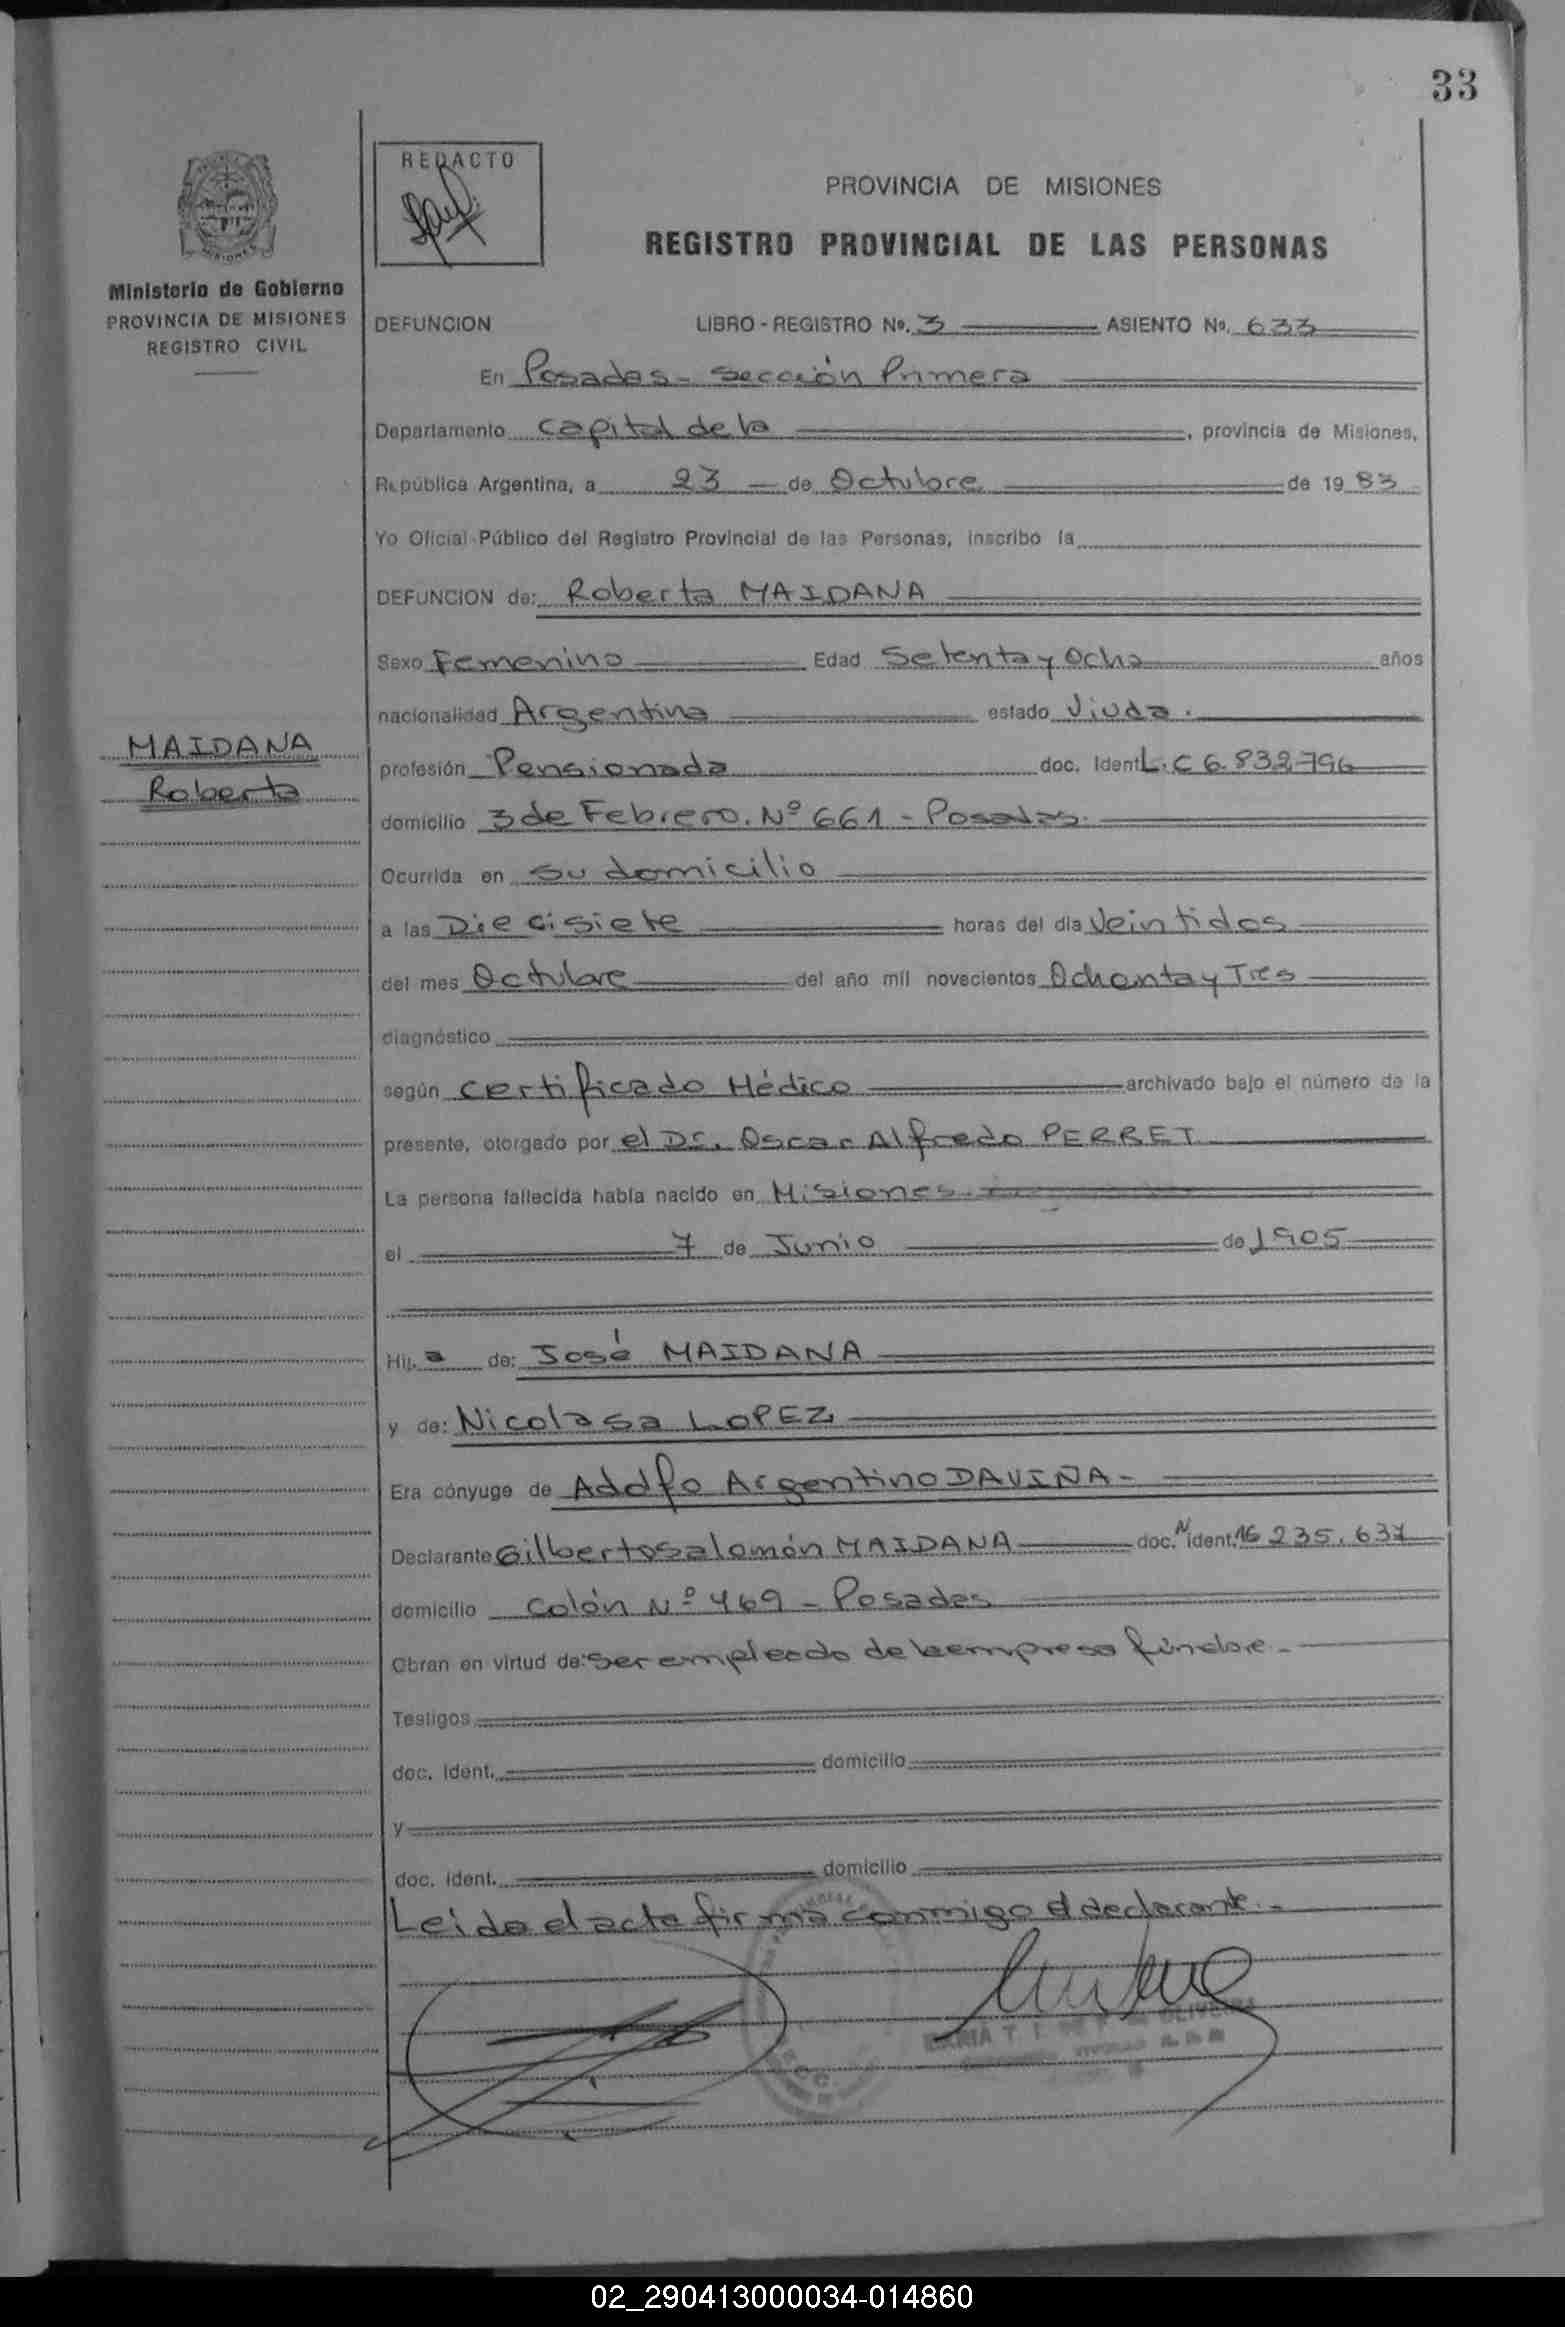 33
REDACTO
PROVINCIA DE MISIONES
REGISTRO PROVINCIAL DE LAS PERSONAS
MISIONES
Ministerio de Gobierno
PROVINCIA DE MISIONES
REGISTRO CIVIL
DEFUNCION LIBRO - REGISTRO Nº. 3 ASIENTO Nº. 633
En Posadas - Sección Primera
Departamento Capital de la , provincia de Misiones,
República Argentina, a 23 de Octubre de 19 83
Yo Oficial Público del Registro Provincial de las Personas, inscribo la
DEFUNCION de: Roberta MAIDANA
Sexo Femenino Edad Setenta y Ocho años
nacionalidad Argentina estado Viuda.
MAIDANA
Roberta
profesión Pensionada doc. Ident L.C 6.832796
domicilio 3 de Febrero. Nº 661 - Posadas.
Ocurrida en su domicilio
a las Diecisiete horas del día Veintidos
del mes Octubre del año mil novecientos Ochenta y Tres
diagnóstico
según Certificado Médico archivado bajo el número de la
presente, otorgado por el Dr. Oscar Alfredo PERRET
La persona fallecida había nacido en Misiones.
el 7 de Junio de 1905
Hij a de: José MAIDANA
y de: Nicolasa LOPEZ
Era cónyuge de Adolfo Argentino DAVIÑA -
Declarante Gilberto Salomón MAIDANA doc. N ident. 16 235.637
domicilio Colón Nº 469 - Posadas
Obran en virtud de: Ser empleado de la empresa fúnebre. -
Testigos
doc. Ident. domicilio
y
doc. Ident. domicilio
Leida el acta firma conmigo el declarante. -
MARIA T. OLIVEIRA
02_290413000034-014860